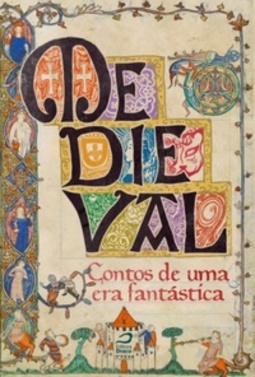 ME
DIE
VAL
Contos de uma
era fantástica